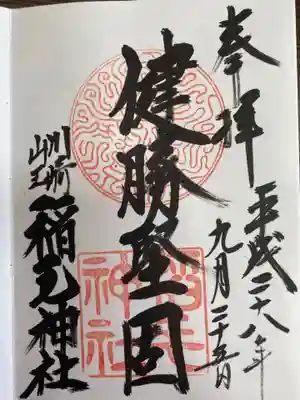 奉拝
平成二十八年
九月二十五日
健勝堅固
川崎
山王
稲毛神社